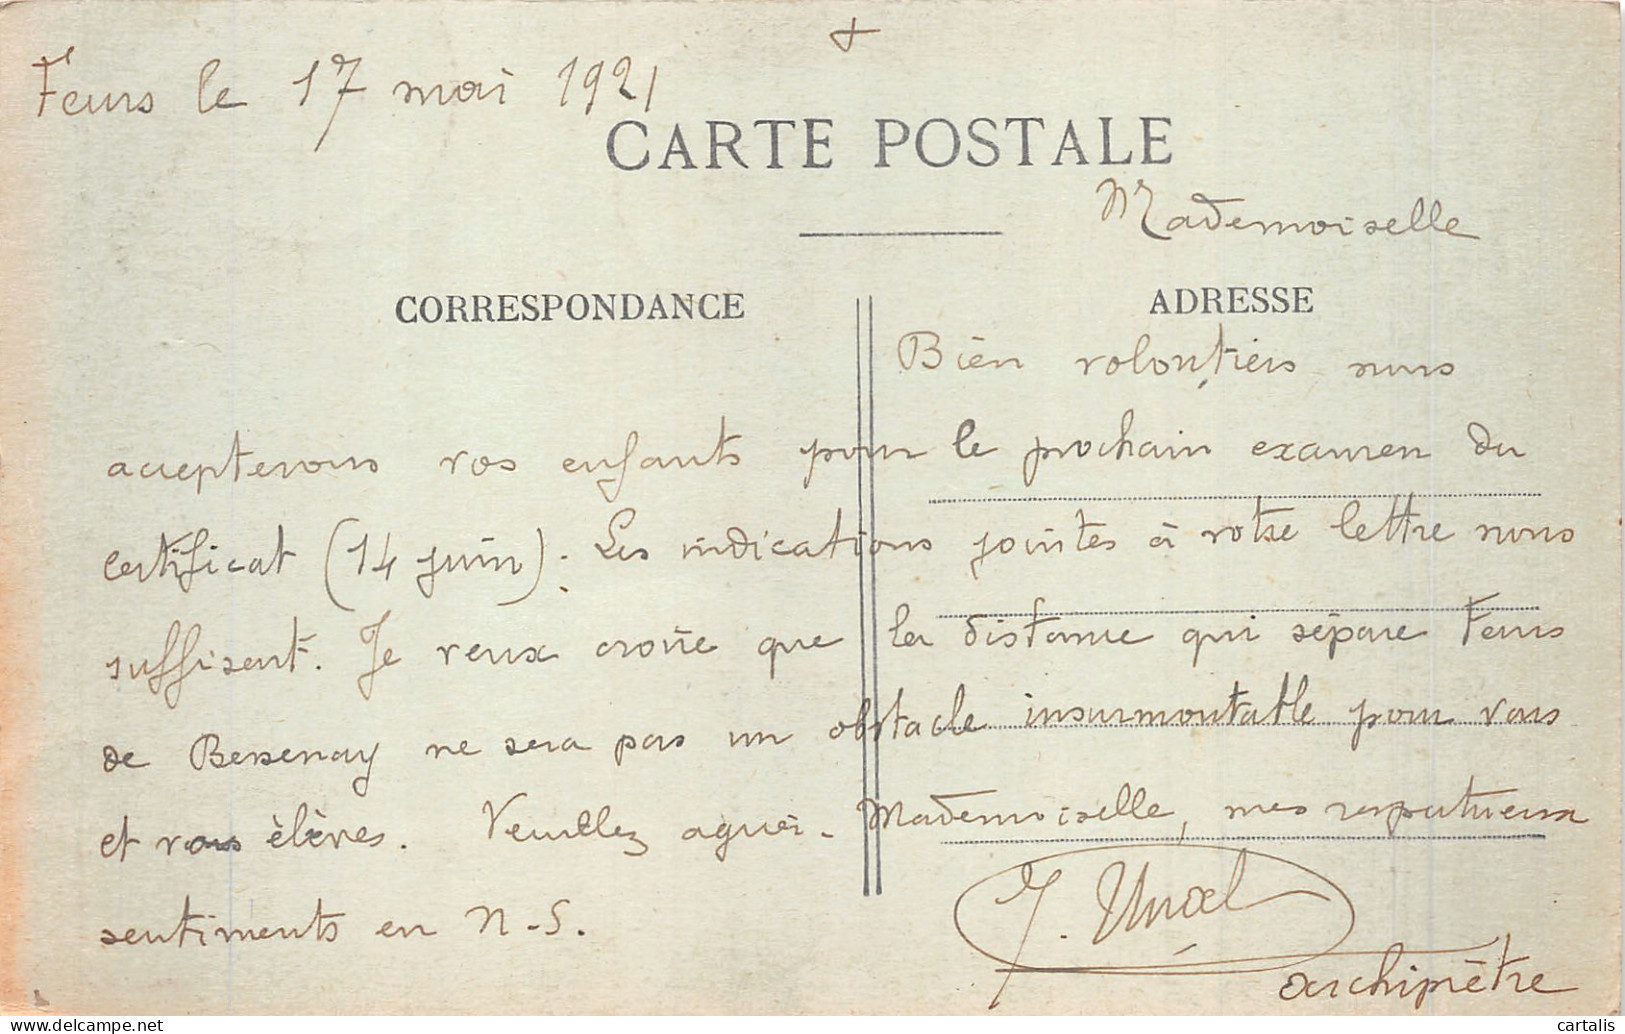 Feurs le 17 mai 1921
CARTE POSTALE
Mademoiselle
CORRESPONDANCE
ADRESSE
Bien volontiers nous
accepterons vos enfants pour le prochain examen du
certificat (14 juin). Les indications jointes à votre lettre nous
suffisent. Je veux croire que la distance qui sépare Feurs
de Bessenay ne sera pas un obstacle insurmontable pour vous
et vos élèves. Veuillez agréer. Mademoiselle, mes respectueux
sentiments en N.-S.
J.
archiprêtre
cartalis
delcampe.net